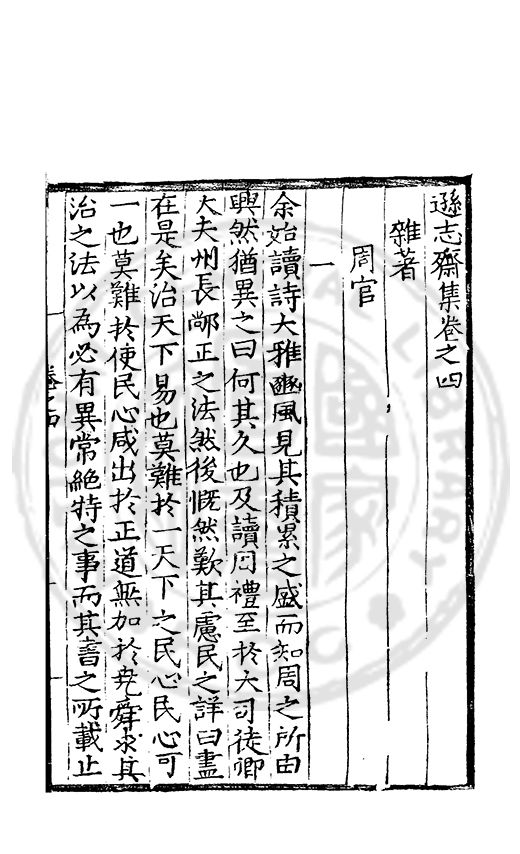 遜志齋集卷之四
雜著
周官
一
余始讀詩大雅豳風見其積累之盛而知周之所由
興然猶異之曰何其久也及讀周禮至於大司徒卿
大夫州長鄰正之法然後慨然歎其慮民之詳曰盡
在是矣治天下易也莫難於一天下之民心民心可
一也莫難於使民心咸出於正道無加於堯舜求其
治之法以為必有異常絕特之事而其書之所載止
卷之四